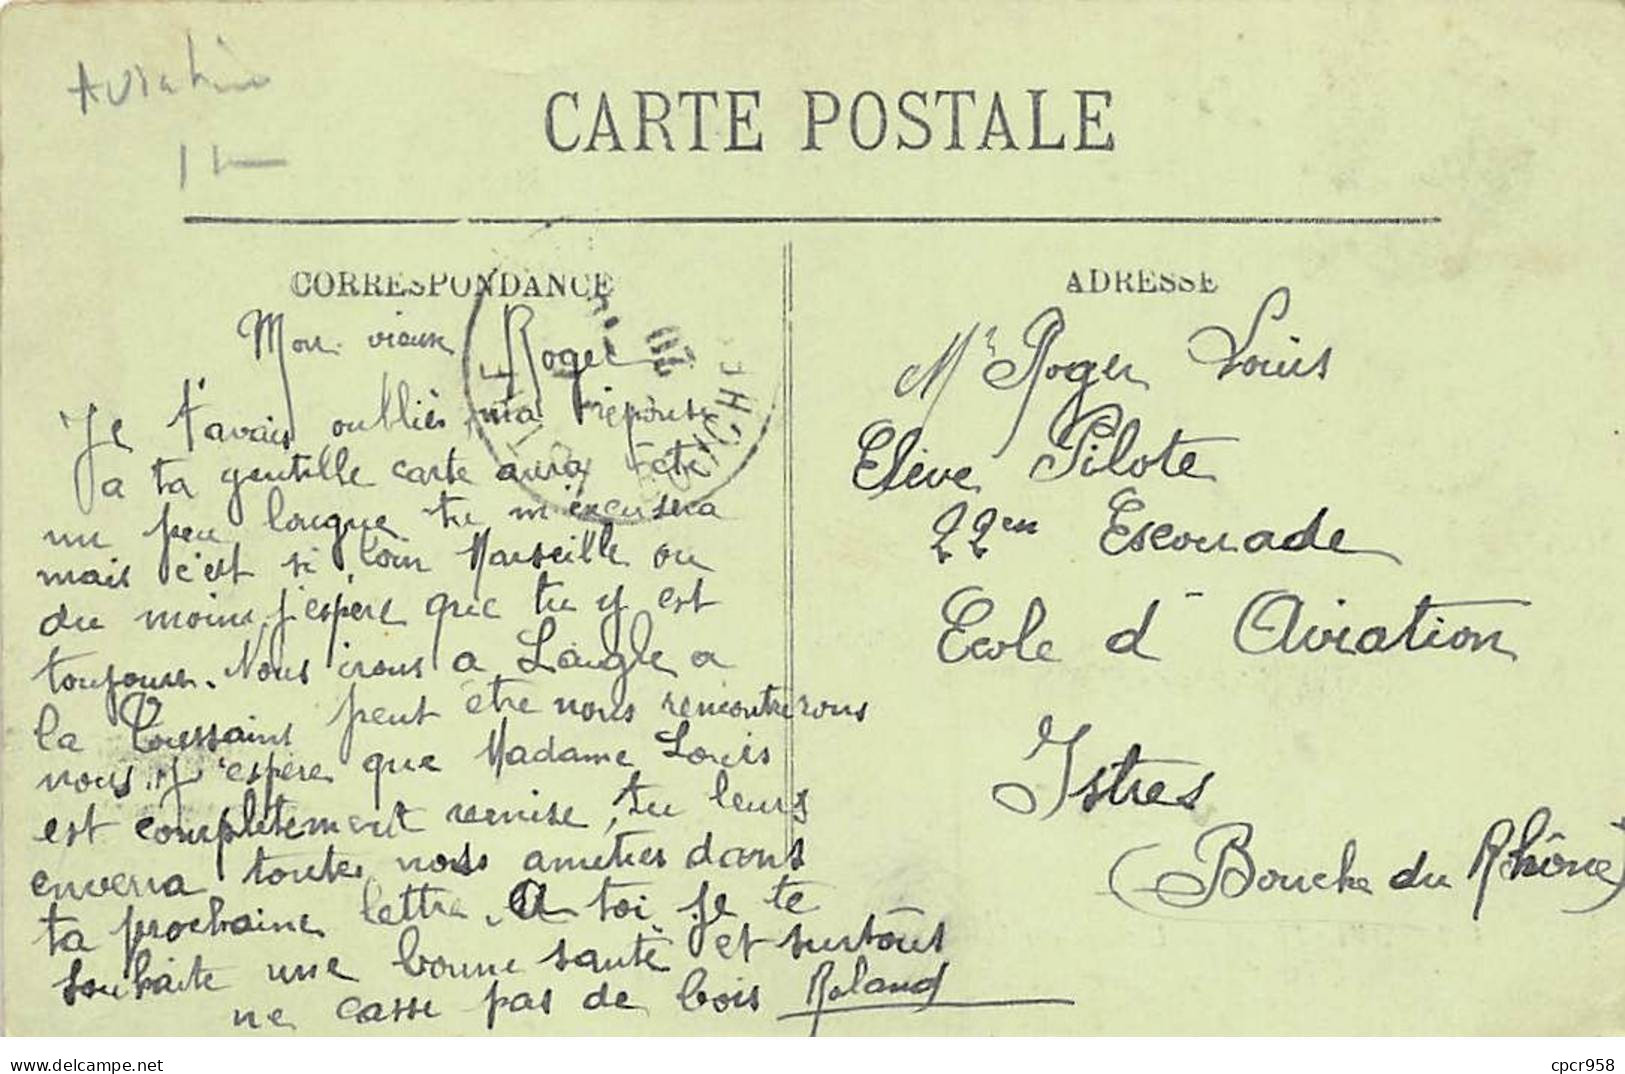 Aviation
CARTE POSTALE
CORRESPONDANCE
Mon vieux Roger
Je t'avais oubliés ma réponse
a ta gentille carte aura été
un peu longue tu m'excusera
mais c'est si loin Marseille ou
du moins j'espère que tu y est
toujours. Nous irons a Laigle a
la Toussaint peut être nous rencontrerons
nous. J'espère que Madame Louis
est complètement remise, tu leurs
enverra toutes nos amitiés dans
ta prochaine lettre. A toi je te
souhaite une bonne santé et surtout
ne casse pas de bois Roland
ADRESSE
Mr Roger Louis
Elève Pilote
22en Escouade
Ecole d'Aviation
Istres
(Bouche du Rhône)
delcampe.net
cpcr958